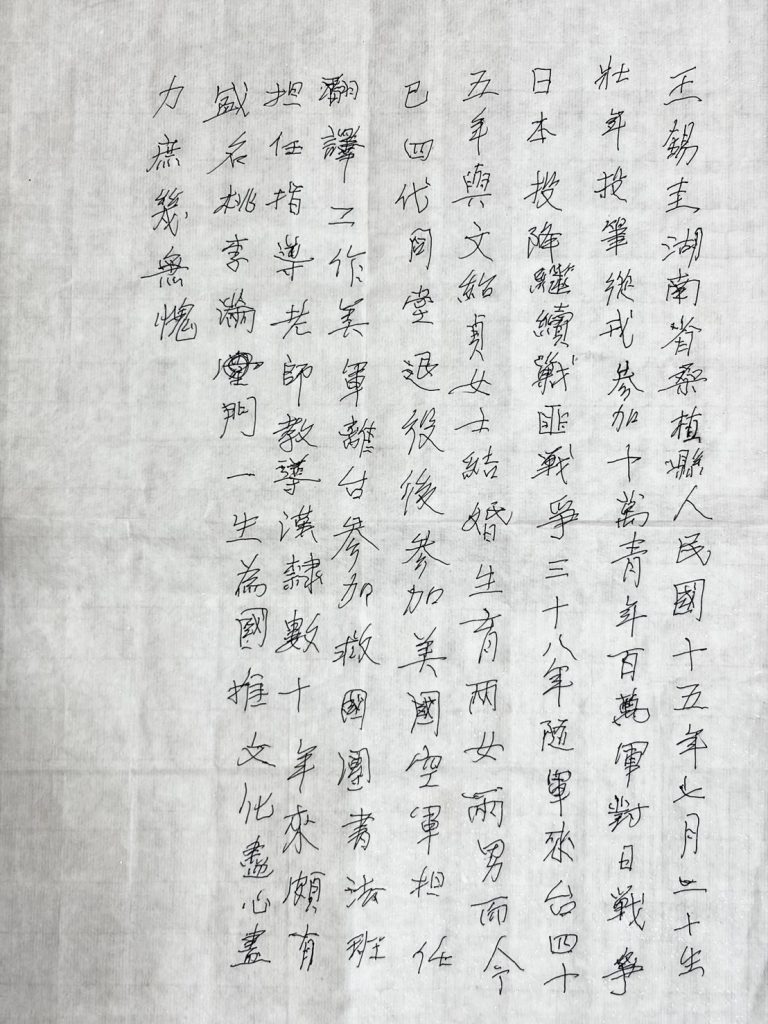 王錫圭湖南省桑植縣人民國十五年七月二十生
壯年投筆從戎參加十萬青年百萬軍對日戰爭
日本投降繼續戰匪戰爭三十八年隨軍來台四十
五年與文紹貞女士結婚生育两女兩男而今
已四代同堂退役後參加美國空軍担任
翻譯工作美軍離台參加救國團書法班
担任指導老師教導漢隸數十年來頗有
盛名桃李滿門一生為國推文化盡心盡
力庶幾無愧